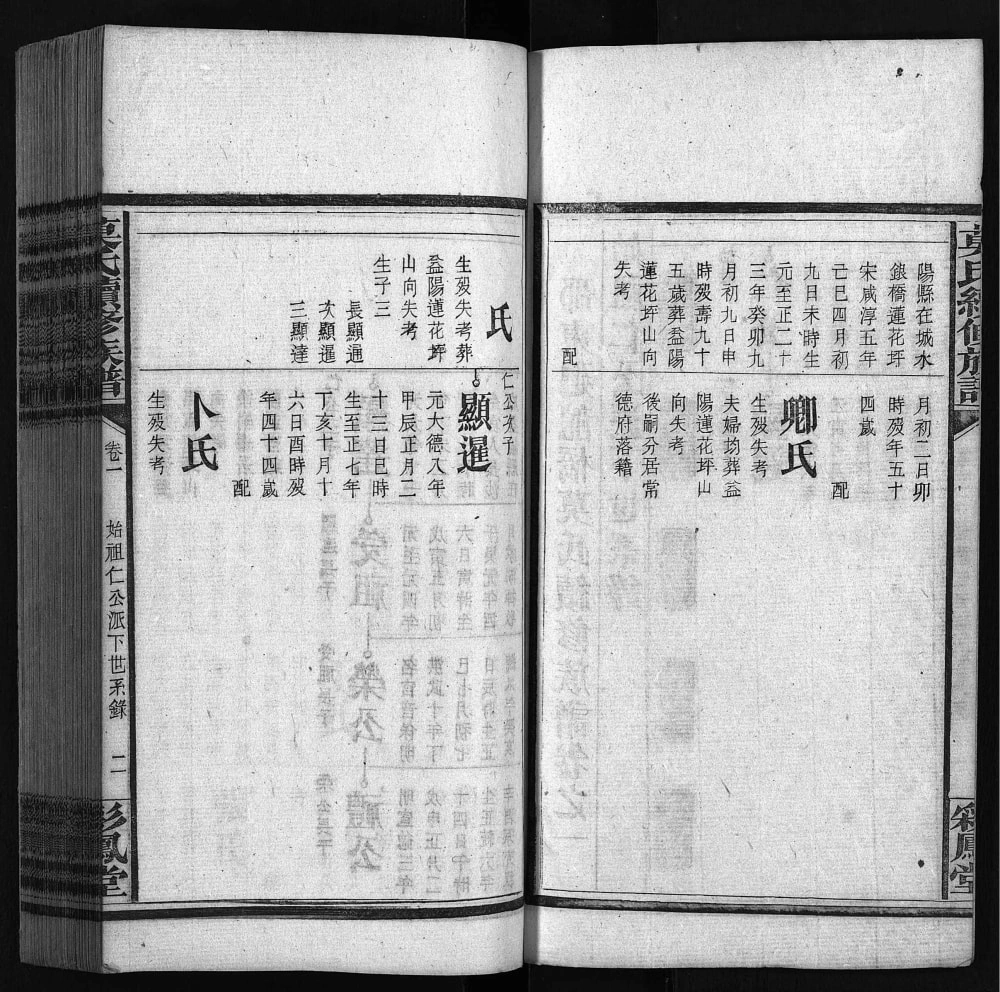 陽縣在城水
銀橋蓮花坪
宋咸淳五年
己巳四月初
九日未時生
元至正二十
三年癸卯九
月初九日申
時歿壽九十
五歲葬益陽
蓮花坪山向
失考
配
月初二日卯
時歿年五十
四歲
配
鄉氏
生歿失考
夫婦均葬益
陽蓮花坪山
向失考
後嗣分居常
德府落籍
彩鳳堂
氏
生歿失考葬
益陽蓮花坪
山向失考
生子三
長顯通
次顯暹
三顯達
仁公次子
顯暹
元大德八年
甲辰正月二
十三日巳時
生至正七年
丁亥十月十
六日酉時歿
年四十四歲
配
卜氏
生歿失考
莫氏續修族譜
卷一
始祖仁公派下世系錄
二
彩鳳堂